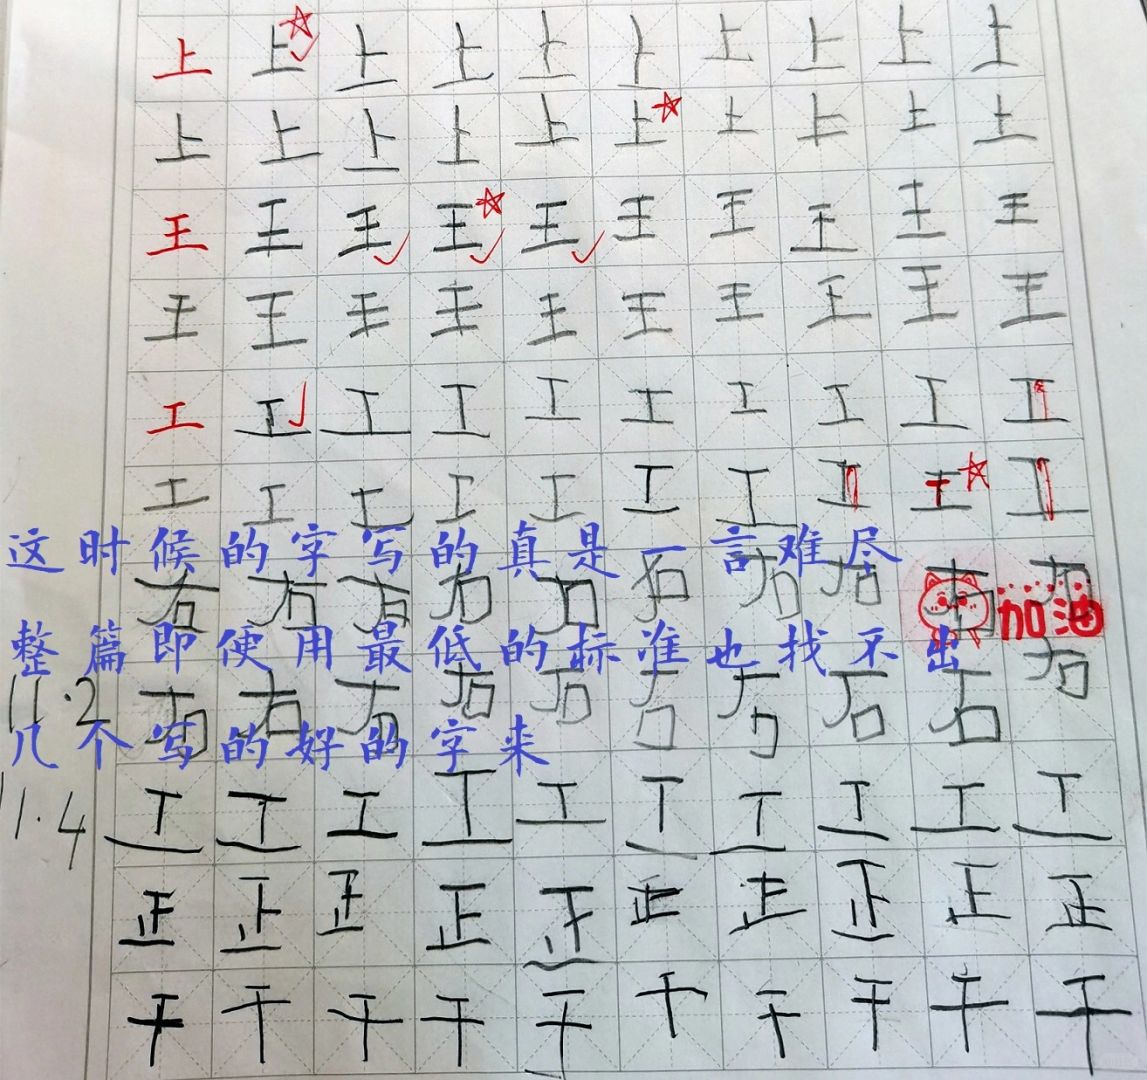 上上上上上上上上上上
上上上上上上上上上上
王王王王王王王王王王
王王王王王王王王王王
工工工工工工工工工工
工工工工工工工工工工
这时候的字写的真是一言难尽
右右右右右右右右右右
加油
整篇即便用最低的标准也找不出
11.2 右右右右石石石石石右
几个写的好的字来
11.4 工工工工工工工工工工
正正正正正正正正正正
干干干干干干干干干干